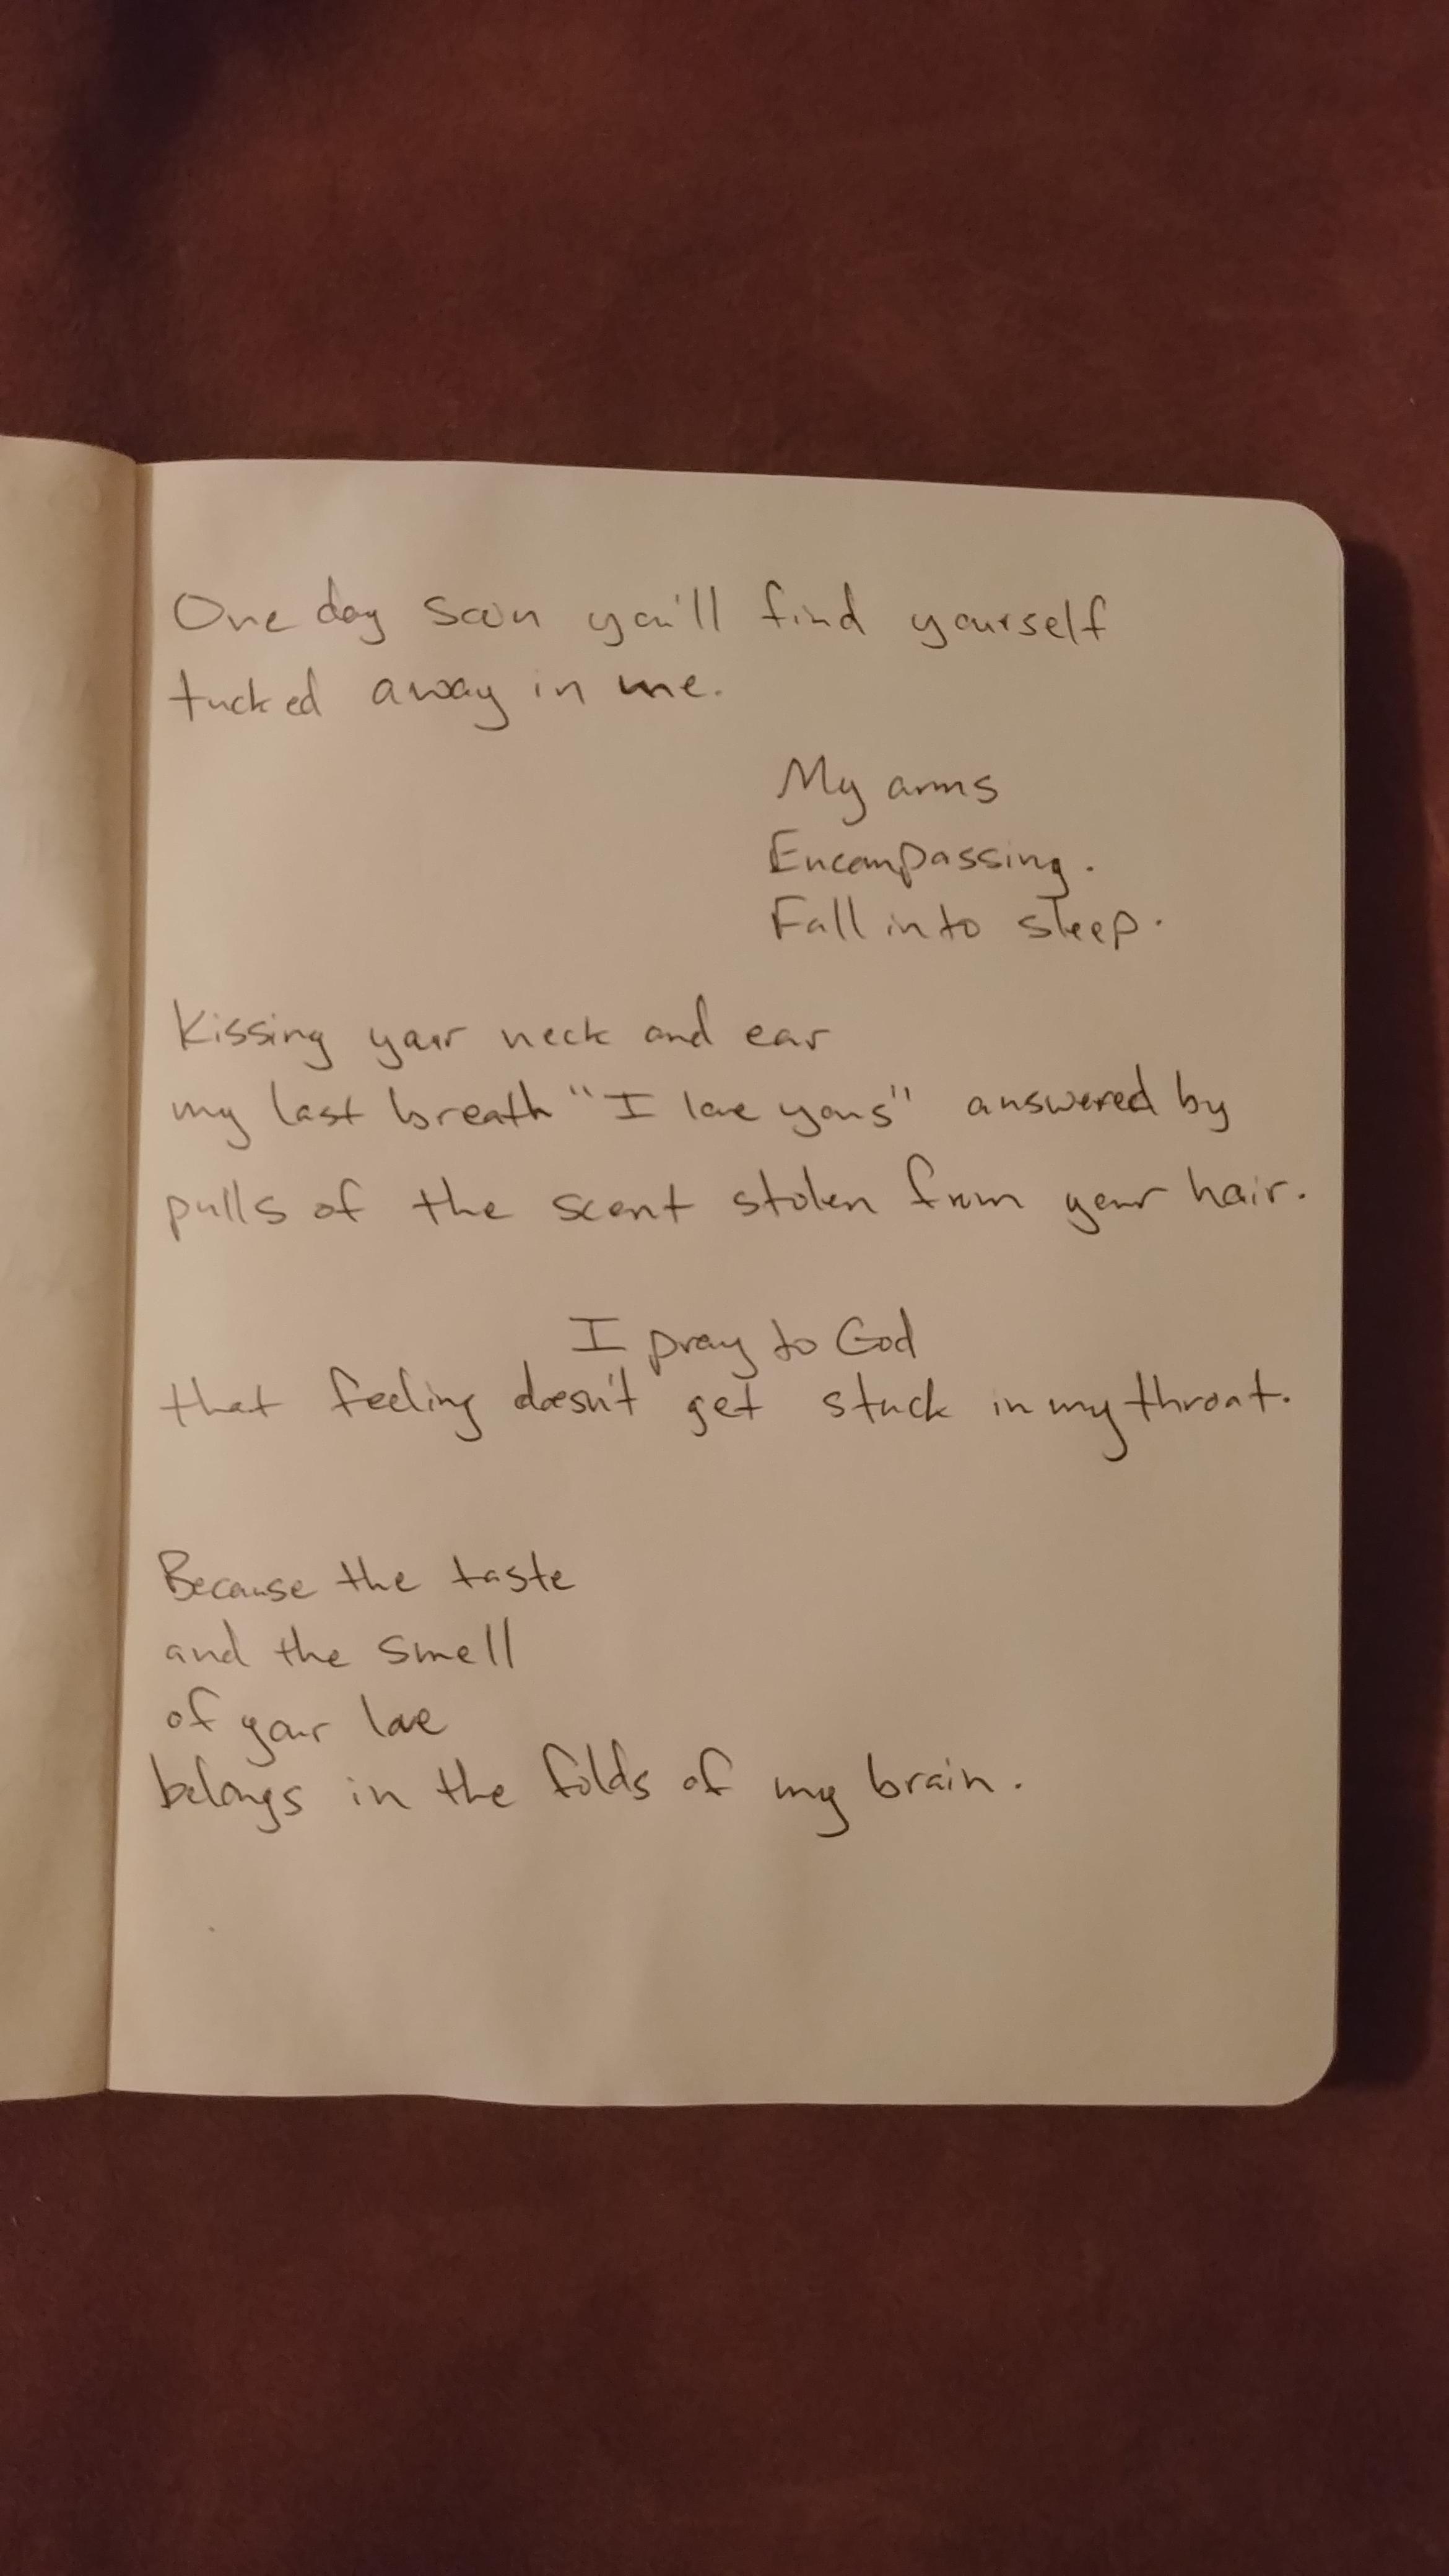 One day soon you'll find yourself
tucked away in me.
My arms
Encompassing.
Fall into sleep.
Kissing your neck and ear
my last breath "I love yous" answered by
pulls of the scent stolen from your hair.
I pray to God
that feeling doesn't get stuck in my throat.
Because the taste
and the smell
of your love
belongs in the folds of my brain.